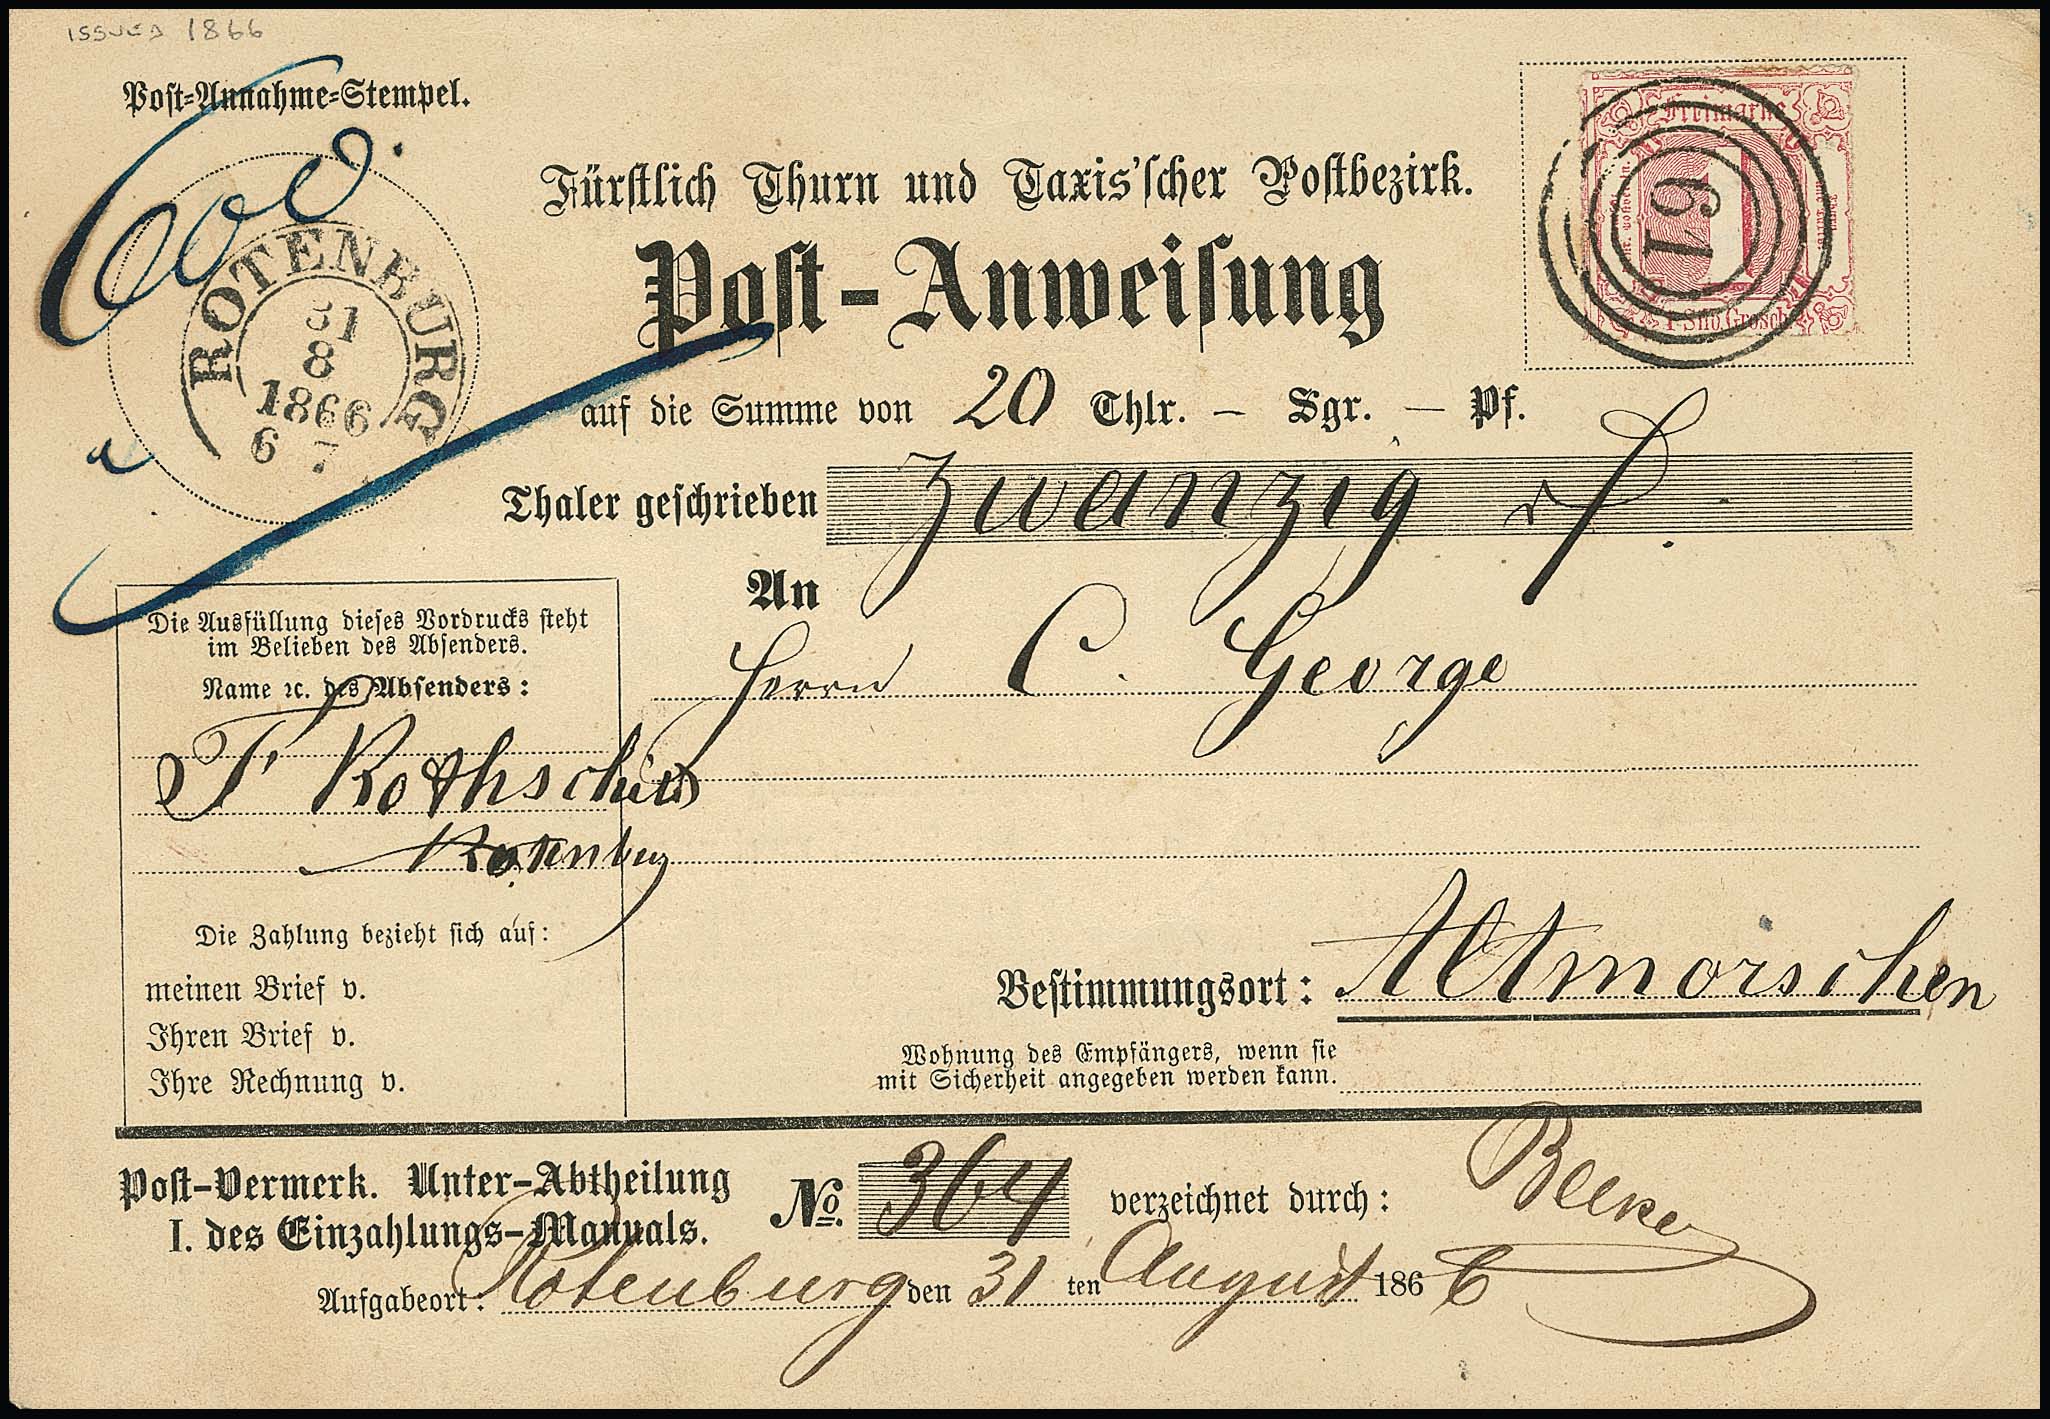 ISSUED 1866
Post-Annahme-Stempel.
ROTENBURG
31
8
1866
6 7
Freimarke
1
1 Silb. Grosch.
67
Fürstlich Thurn und Taxis'scher Postbezirk.
Post-Anweisung
auf die Summe von 20 Thlr. — Sgr. — Pf.
Thaler geschrieben Zwanzig
An
Herrn C. George
Die Ausfüllung dieses Vordrucks steht
im Belieben des Absenders.
Name ꝛc. des Absenders:
Rothschild
Rotenburg
Die Zahlung bezieht sich auf:
meinen Brief v.
Ihren Brief v.
Ihre Rechnung v.
Bestimmungsort: Altmorschen
Wohnung des Empfängers, wenn sie
mit Sicherheit angegeben werden kann.
Post-Vermerk. Unter-Abtheilung
I. des Einzahlungs-Manuals.
No. 364 verzeichnet durch:
Aufgabeort: Rotenburg den 31 ten August 1866